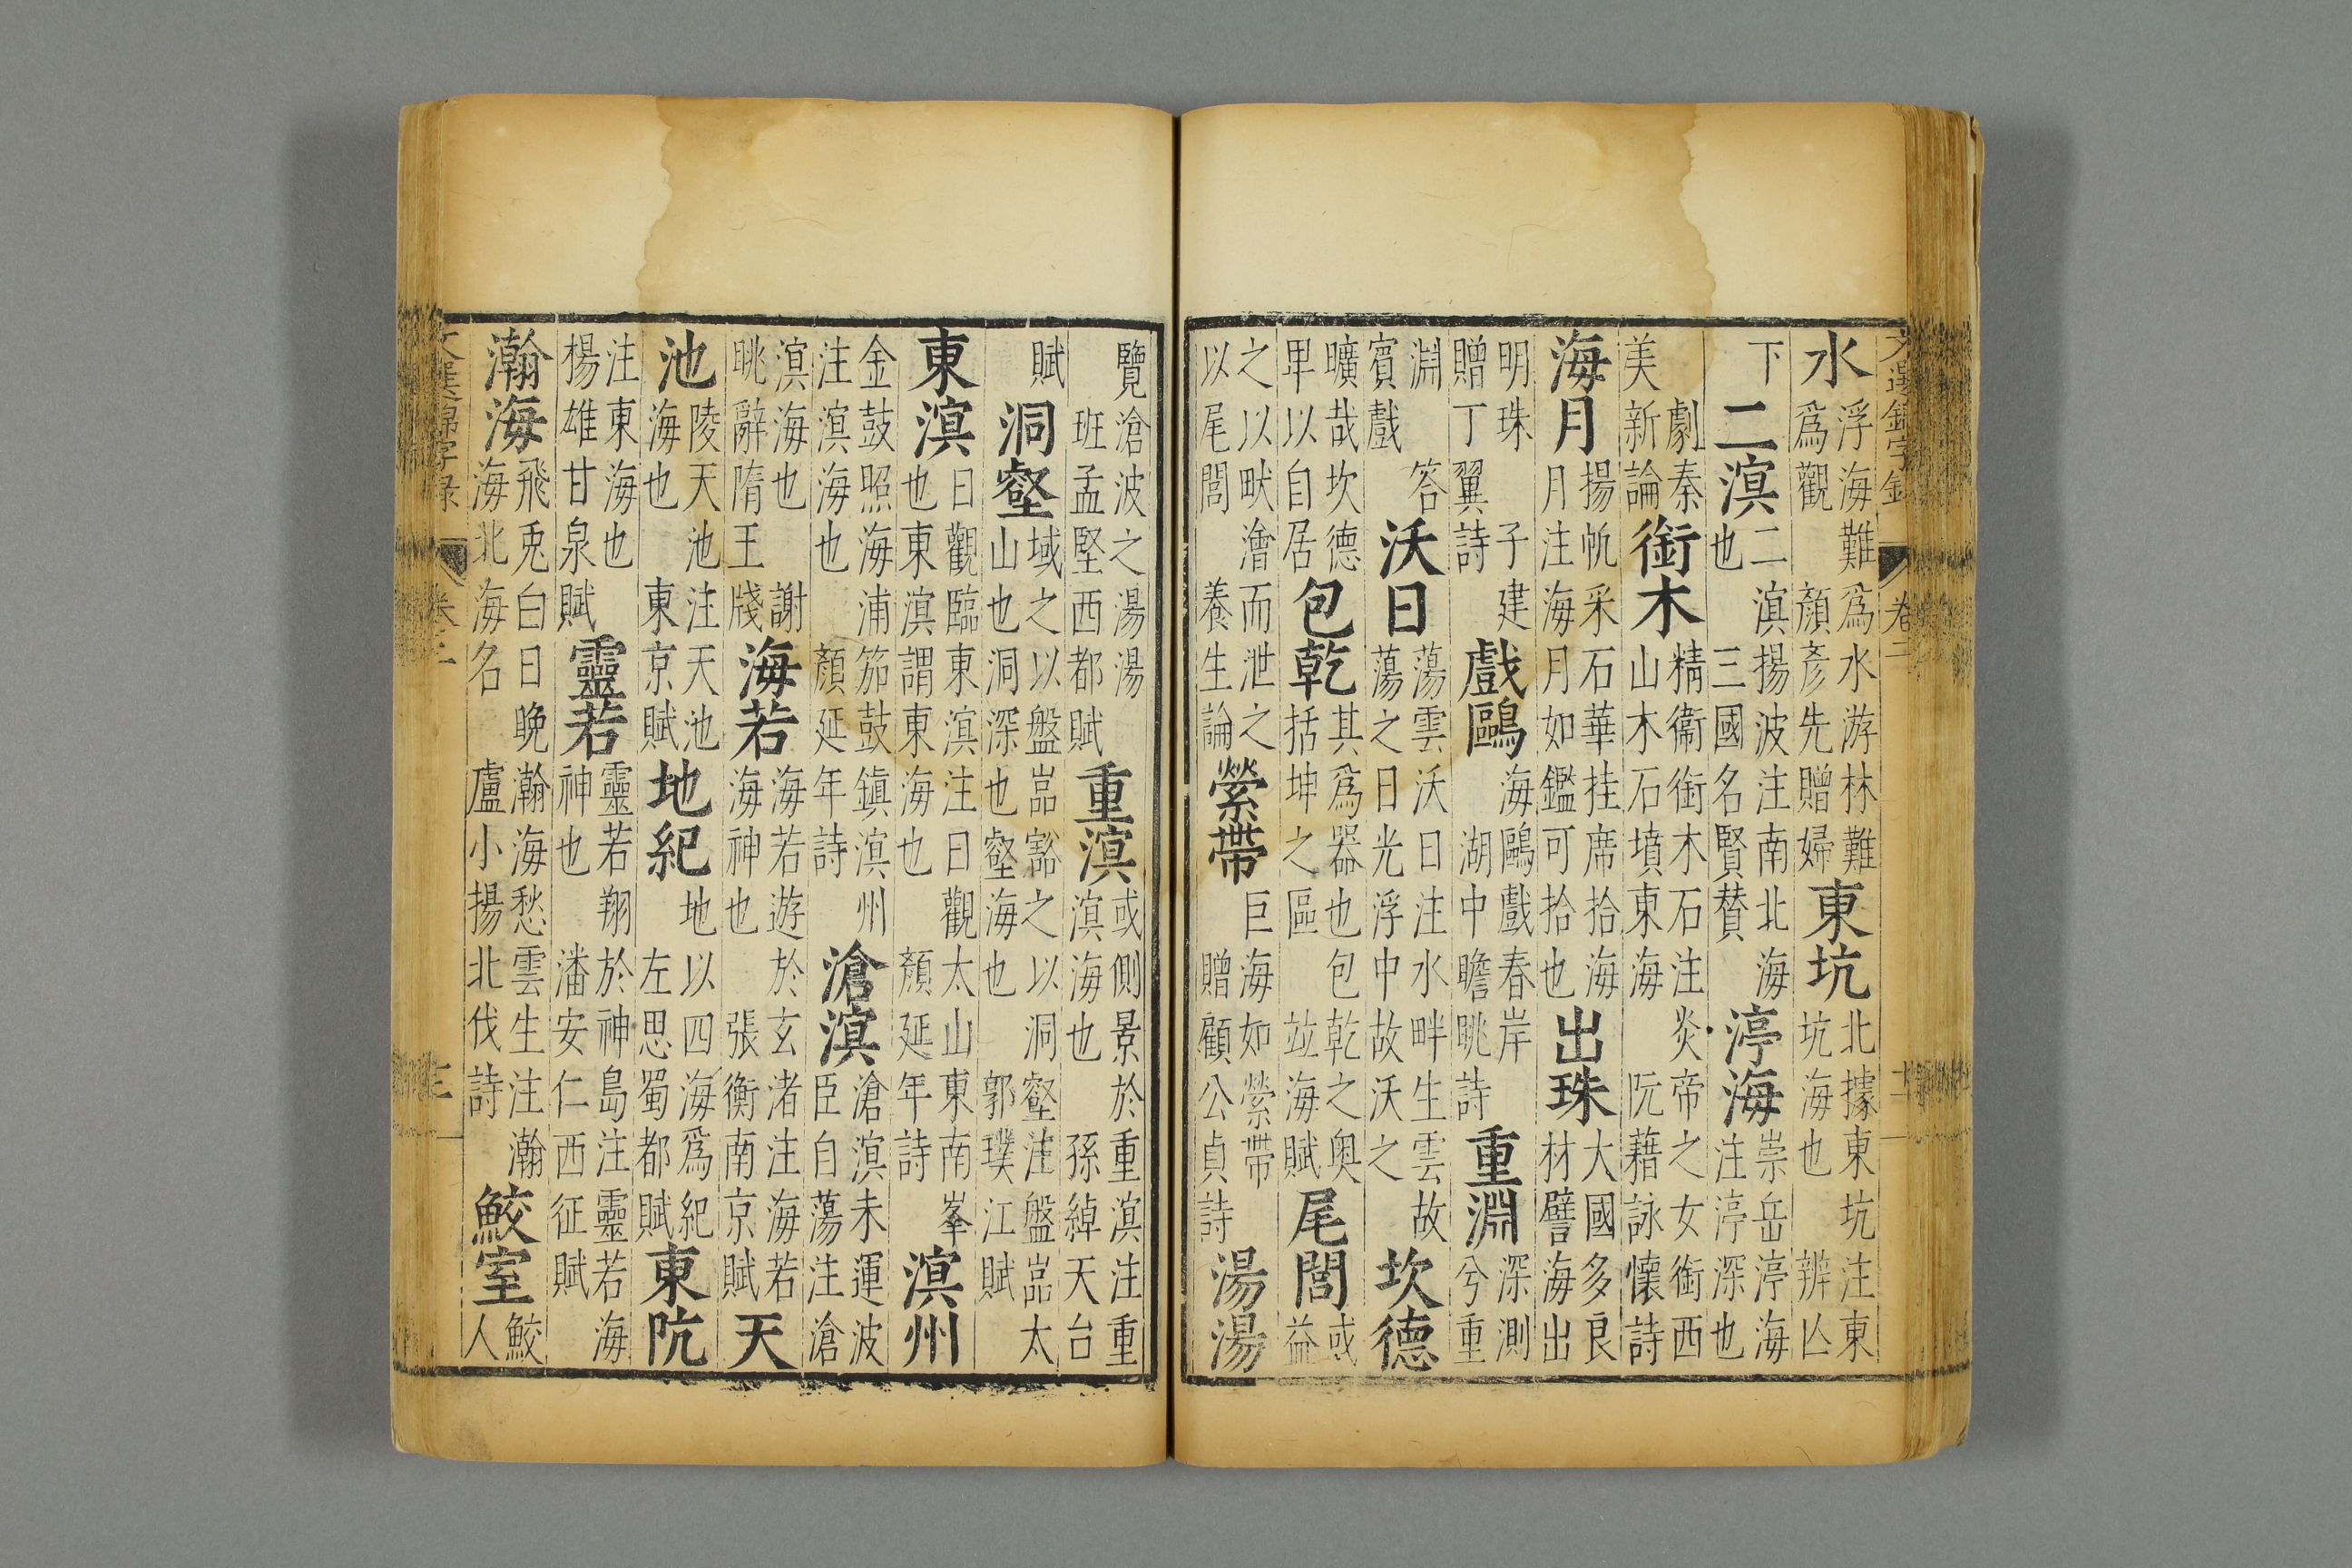 水浮海難爲水游林難爲觀顏彥先贈婦東坑北據東坑注東坑海也辨亾
下二溟二溟揚波注南北海也三國名賢賛渟海崇岳渟海注渟深也
劇秦美新論銜木精衞銜木石注炎帝之女銜西山木石墳東海阮藉詠懷詩
海月揚帆采石華挂席拾海月注海月如鑑可拾也出珠大國多良材譬海出
明珠子建贈丁翼詩戲鷗海鷗戲春岸湖中瞻眺詩重淵深測兮重
淵答賓戲沃日蕩雲沃日注水畔生雲故蕩之日光浮中故沃之坎德
曠哉坎德卑以自居包乾其爲器也包乾之奧括坤之區竝海賦尾閭或益
之以畎澮而泄之以尾閭養生論縈帶巨海如縈帶贈顧公貞詩湯湯
覽滄波之湯湯班孟堅西都賦重溟或倒景於重溟注重溟海也孫綽天台
賦洞壑域之以盤嵓豁之以洞壑注盤嵓太山也洞深也壑海也郭璞江賦
東溟日觀臨東溟注日觀太山東南峯也東溟謂東海也顏延年詩溟州
金鼓照海浦笳鼓鎮溟州注溟海也顏延年詩滄溟滄溟未運波臣自蕩注滄
溟海也謝眺辭隋王牋海若海若遊於玄渚注海若海神也張衡南京賦天
池陵天池注天池海也東京賦地紀地以四海爲紀左思蜀都賦東阬
注東海也揚雄甘泉賦靈若靈若翔於神島注靈若海神也潘安仁西征賦
瀚海飛兎白日晚瀚海愁雲生注瀚海北海名盧小揚北伐詩鮫室鮫人